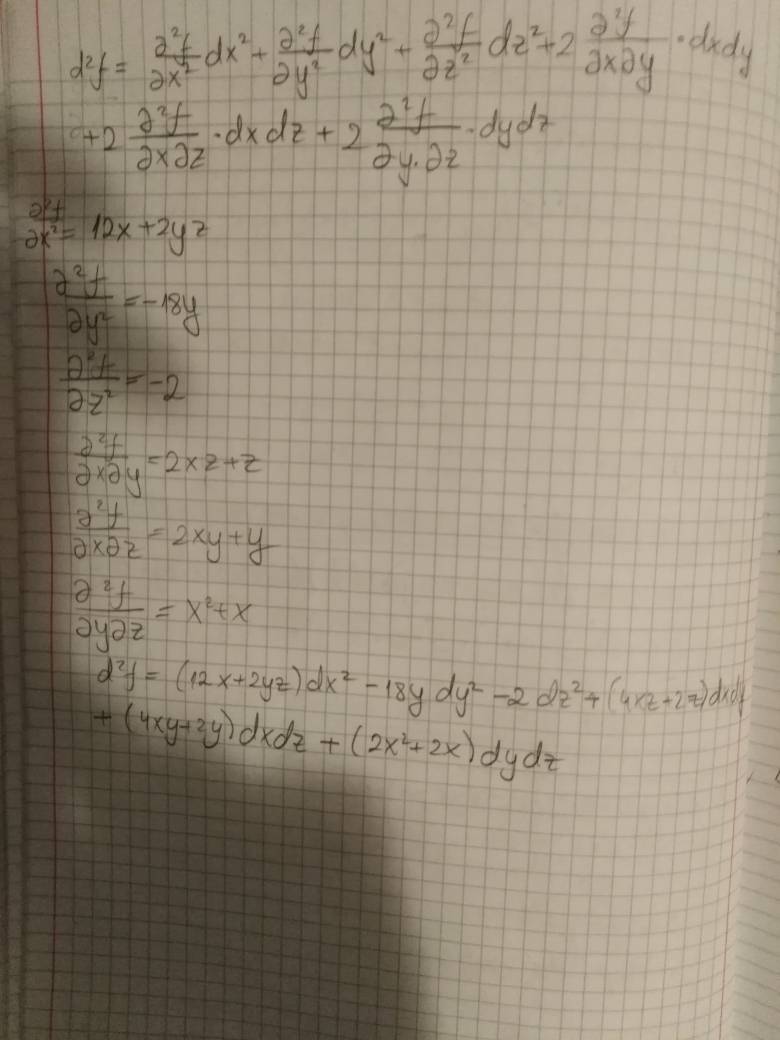 d²f = ∂²f/∂x² dx² + ∂²f/∂y² dy² + ∂²f/∂z² dz² + 2 ∂²f/∂x∂y · dxdy
+2 ∂²f/∂x∂z · dxdz + 2 ∂²f/∂y·∂z · dydz
∂²f/∂x² = 12x + 2yz
∂²f/∂y² = -18y
∂²f/∂z² = -2
∂²f/∂x∂y = 2xz+z
∂²f/∂x∂z = 2xy+y
∂²f/∂y∂z = x²+x
d²f = (12x+2yz)dx² - 18y dy² - 2 dz² + (4xz+2z)dxdy
+ (4xy+2y)dxdz + (2x²+2x)dydz